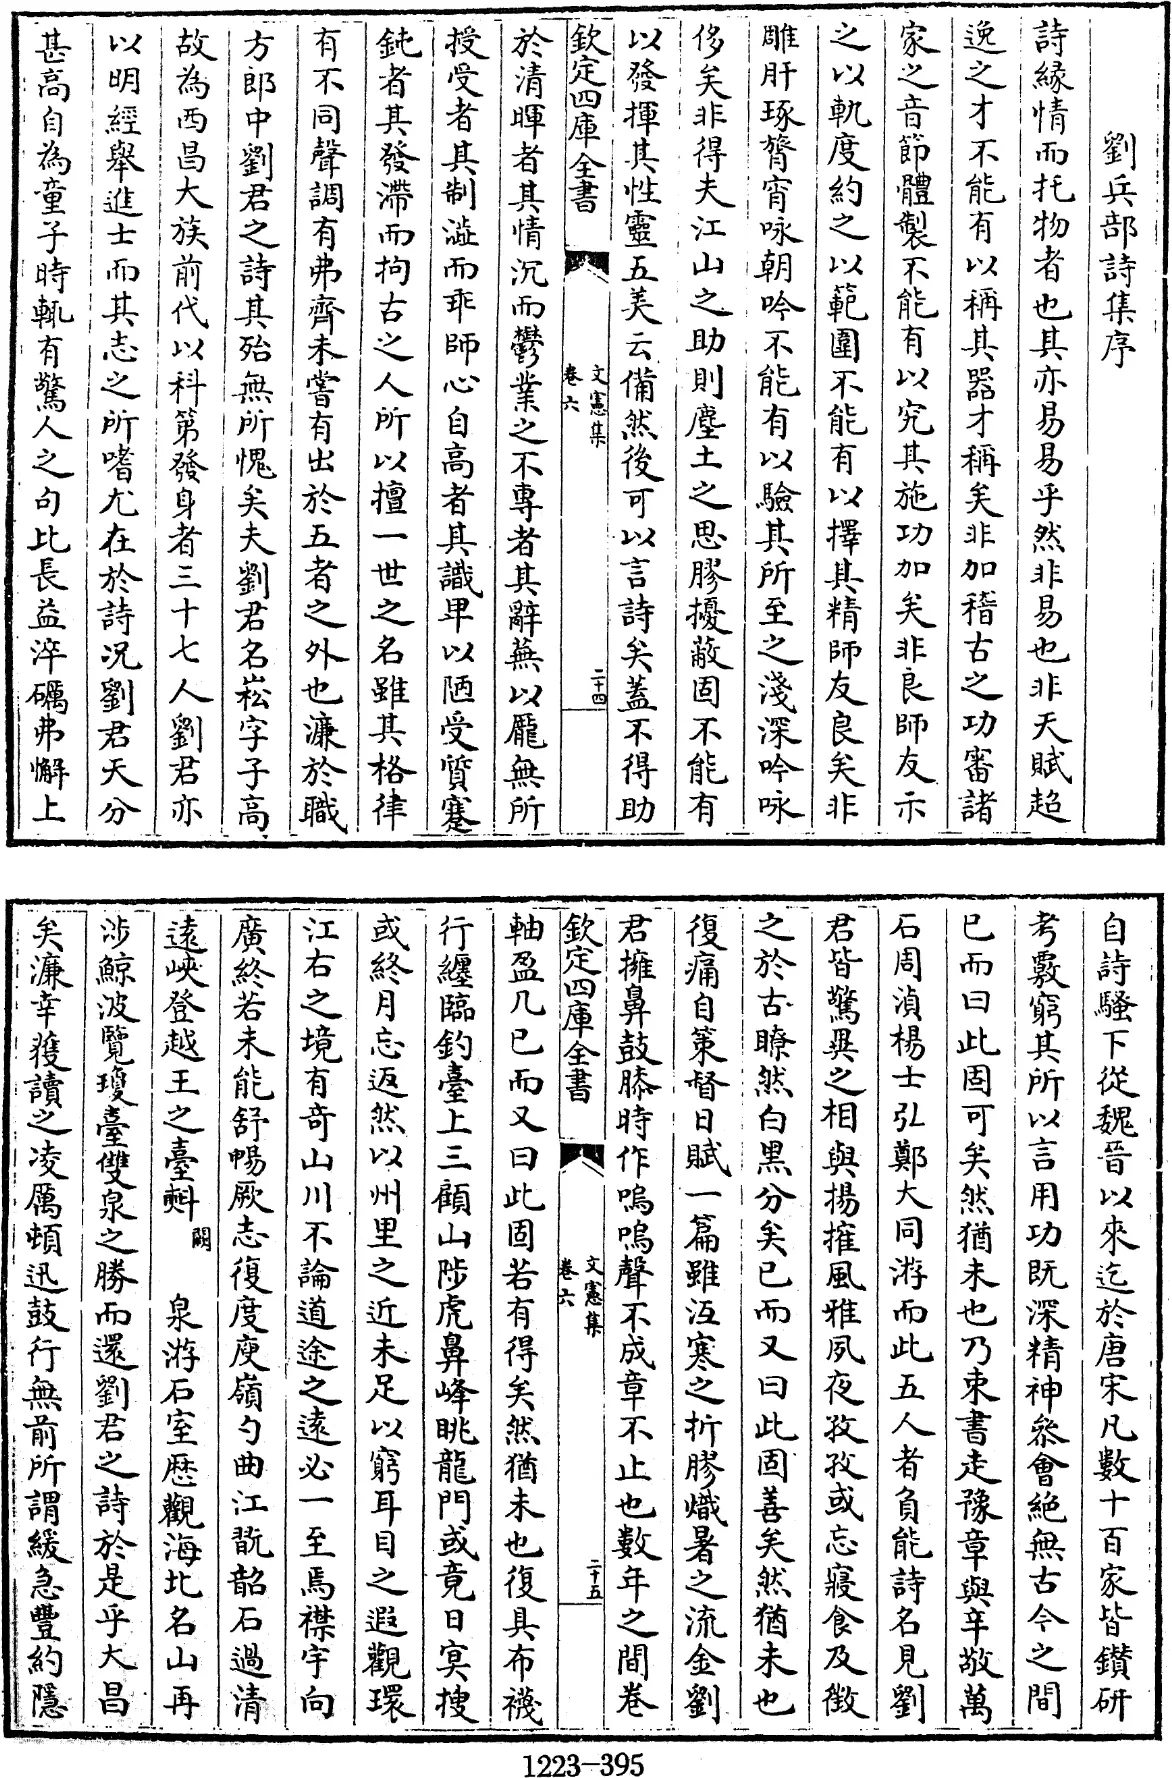 劉兵部詩集序
詩縁情而托物者也其亦易易乎然非易也非天賦超
逸之才不能有以稱其器才稱矣非加稽古之功審諸
家之音節體製不能有以究其施功加矣非良師友示
之以軌度約之以範圍不能有以擇其精師友良矣非
雕肝琢膂宵咏朝吟不能有以驗其所至之淺深吟咏
侈矣非得夫江山之助則塵土之思膠擾蔽固不能有
以發揮其性靈五美云備然後可以言詩矣蓋不得助
欽定四庫全書
文憲集
卷六
二十四
於清暉者其情沉而鬱業之不專者其辭蕪以厖無所
授受者其制澁而乖師心自高者其識卑以陋受質蹇
鈍者其發滯而拘古之人所以擅一世之名雖其格律
有不同聲調有弗齊未嘗有出於五者之外也濂於職
方郎中劉君之詩其殆無所愧矣夫劉君名崧字子高
故為西昌大族前代以科第發身者三十七人劉君亦
以明經舉進士而其志之所嗜尤在於詩况劉君天分
甚高自為童子時輒有驚人之句比長益淬礪弗懈上
自詩騷下從魏晉以來迄於唐宋凡數十百家皆鑚研
考覈窮其所以言用功既深精神叅會絶無古今之間
已而曰此固可矣然猶未也乃束書走豫章與辛敬萬
石周湞楊士弘鄭大同游而此五人者負能詩名見劉
君皆驚異之相與揚搉風雅夙夜孜孜或忘寢食及徵
之於古瞭然白黒分矣已而又曰此固善矣然猶未也
復痛自策督日賦一篇雖沍寒之折膠熾暑之流金劉
君擁鼻鼓膝時作嗚嗚聲不成章不止也數年之間卷
欽定四庫全書
文憲集
卷六
二十五
軸盈几已而又曰此固若有得矣然猶未也復具布襪
行纒臨釣臺上三顧山陟虎鼻峰眺龍門或竟日冥搜
或終月忘返然以州里之近未足以窮耳目之遐觀環
江右之境有奇山川不論道途之遠必一至焉襟宇向
廣終若未能舒暢厥志復度庾嶺勺曲江翫韶石過清
遠峽登越王之臺㪺闕泉游石室歴觀海北名山再
涉鯨波覽瓊臺雙泉之勝而還劉君之詩於是乎大昌
矣濂幸獲讀之凌厲頓迅鼓行無前所謂緩急豐約隱
1223-395